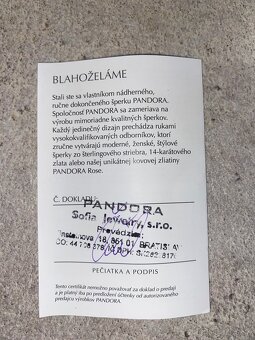 BLAHOŽELÁME
Stali ste sa vlastníkom nádherného,
ručne dokončeného šperku PANDORA.
Spoločnosť PANDORA sa zameriava na
výrobu mimoriadne kvalitných šperkov.
Každý jedinečný dizajn prechádza rukami
vysokokvalifikovaných odborníkov, ktorí
zručne vytvárajú moderné, ženské, štýlové
šperky zo šterlingového striebra, 14-karátového
zlata alebo našej unikátnej kovovej zliatiny
PANDORA Rose.
Č. DOKLADU:
PANDORA
Sofia Jewelry, s.r.o.
Prevádzka:
18, 851 01 BRATISLAV
PEČIATKA A PODPIS
Tento certifikát nemožno považovať za doklad o predaji
a je platný iba po predložení účtenky od autorizovaného
predajcu výrobkov PANDORA.